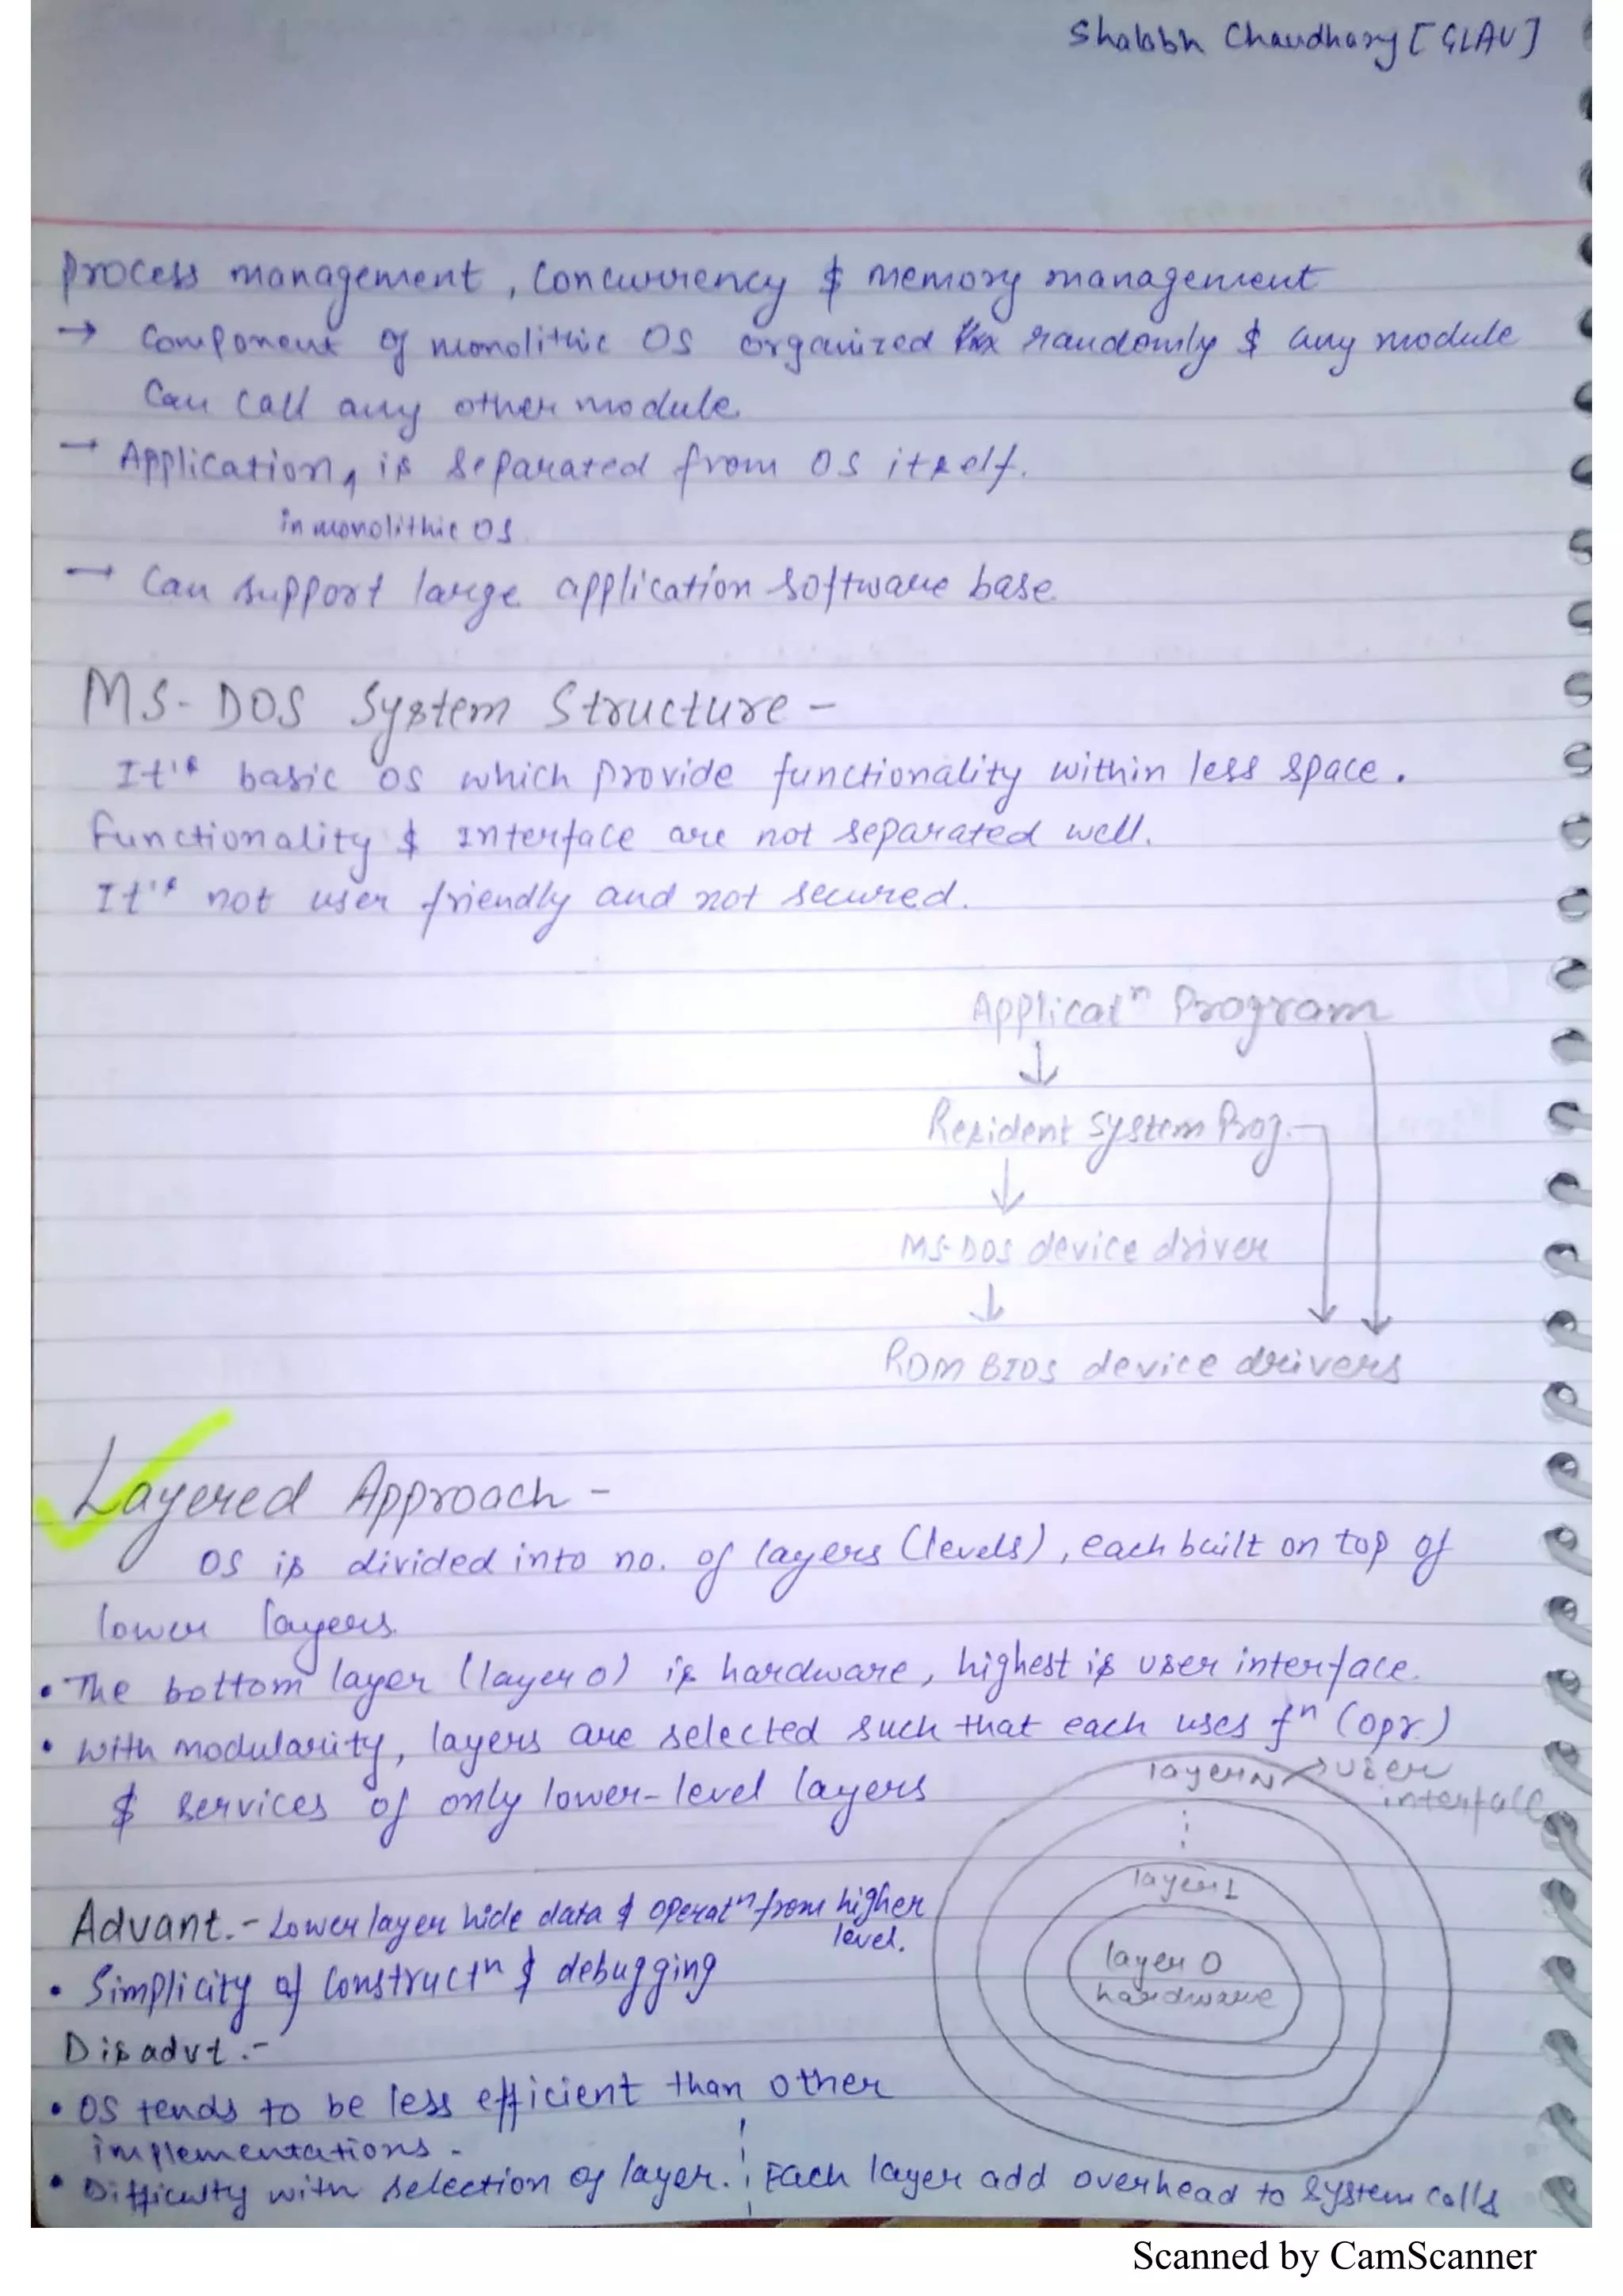 Shalabh Chaudhary [GLAU]
process management, Concurrency & memory management
→ Component of monolithic OS organized randomly & any module
Can call any other module.
→ Application, is separated from OS itself.
in monolithic OS
→ Can support large application software base
MS-DOS System Structure -
It's basic OS which provide functionality within less space.
functionality & Interface are not separated well.
It's not user friendly and not secured.
Applicatⁿ Program
↓
Resident System Prog.
↓
MS-DOS device driver
↓
ROM BIOS device drivers
Layered Approach -
OS is divided into no. of layers (levels), each built on top of
lower layers.
• The bottom layer (layer 0) is hardware, highest is user interface.
• With modularity, layers are selected such that each uses fⁿ (opr.)
& services of only lower-level layers
layer N → user
interface
layer 1
layer 0
hardware
Advant. - Lower layer hide data & operatⁿ from higher
level.
• Simplicity of Constructⁿ & debugging
Disadvt. -
• OS tends to be less efficient than other
implementations -
• Difficulty with selection of layer. Each layer add overhead to System calls
Scanned by CamScanner